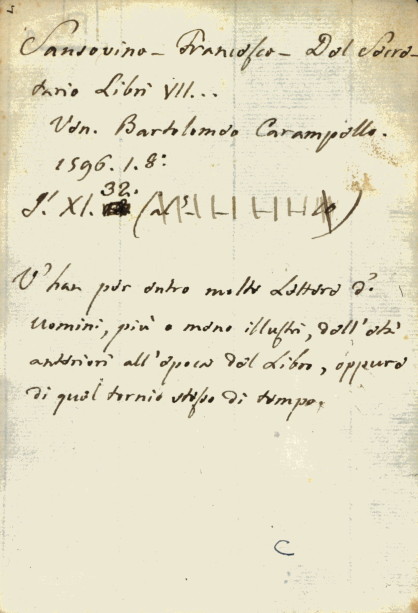 Sansovino - Francesco - Del Secre-
tario Libri VII...
Ven. Bartolomeo Carampello.
1596. 1. 8:
32.
J. XI.
V' han per entro molte Lettere d.
Uomini, più o meno illustri, dell' età
anteriori all' epoca del Libro, oppure
di quel tornio stesso di tempo.
C